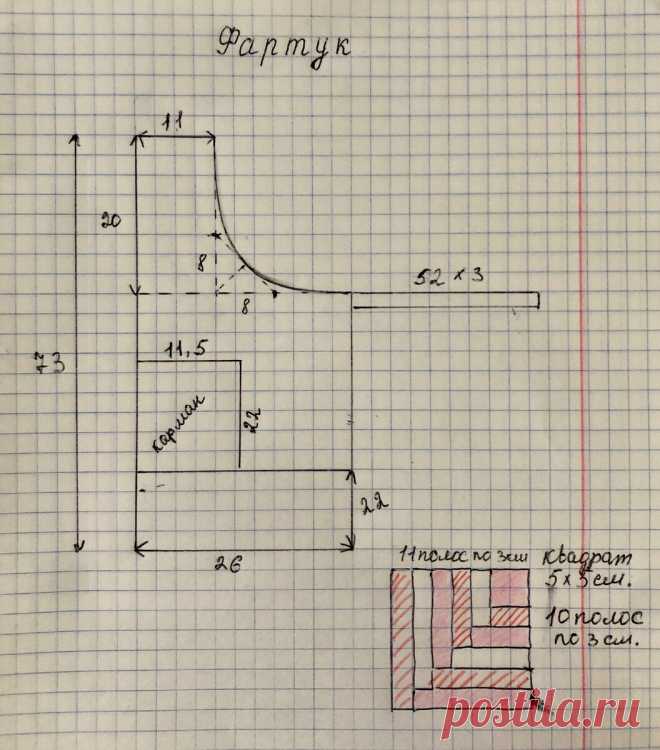 Фартук
11
20
8
8
52 x 3
73
11,5
карман
22
22
26
11 полос по 3 см
квадрат
5 x 3 см.
10 полос
по 3 см.
postila.ru